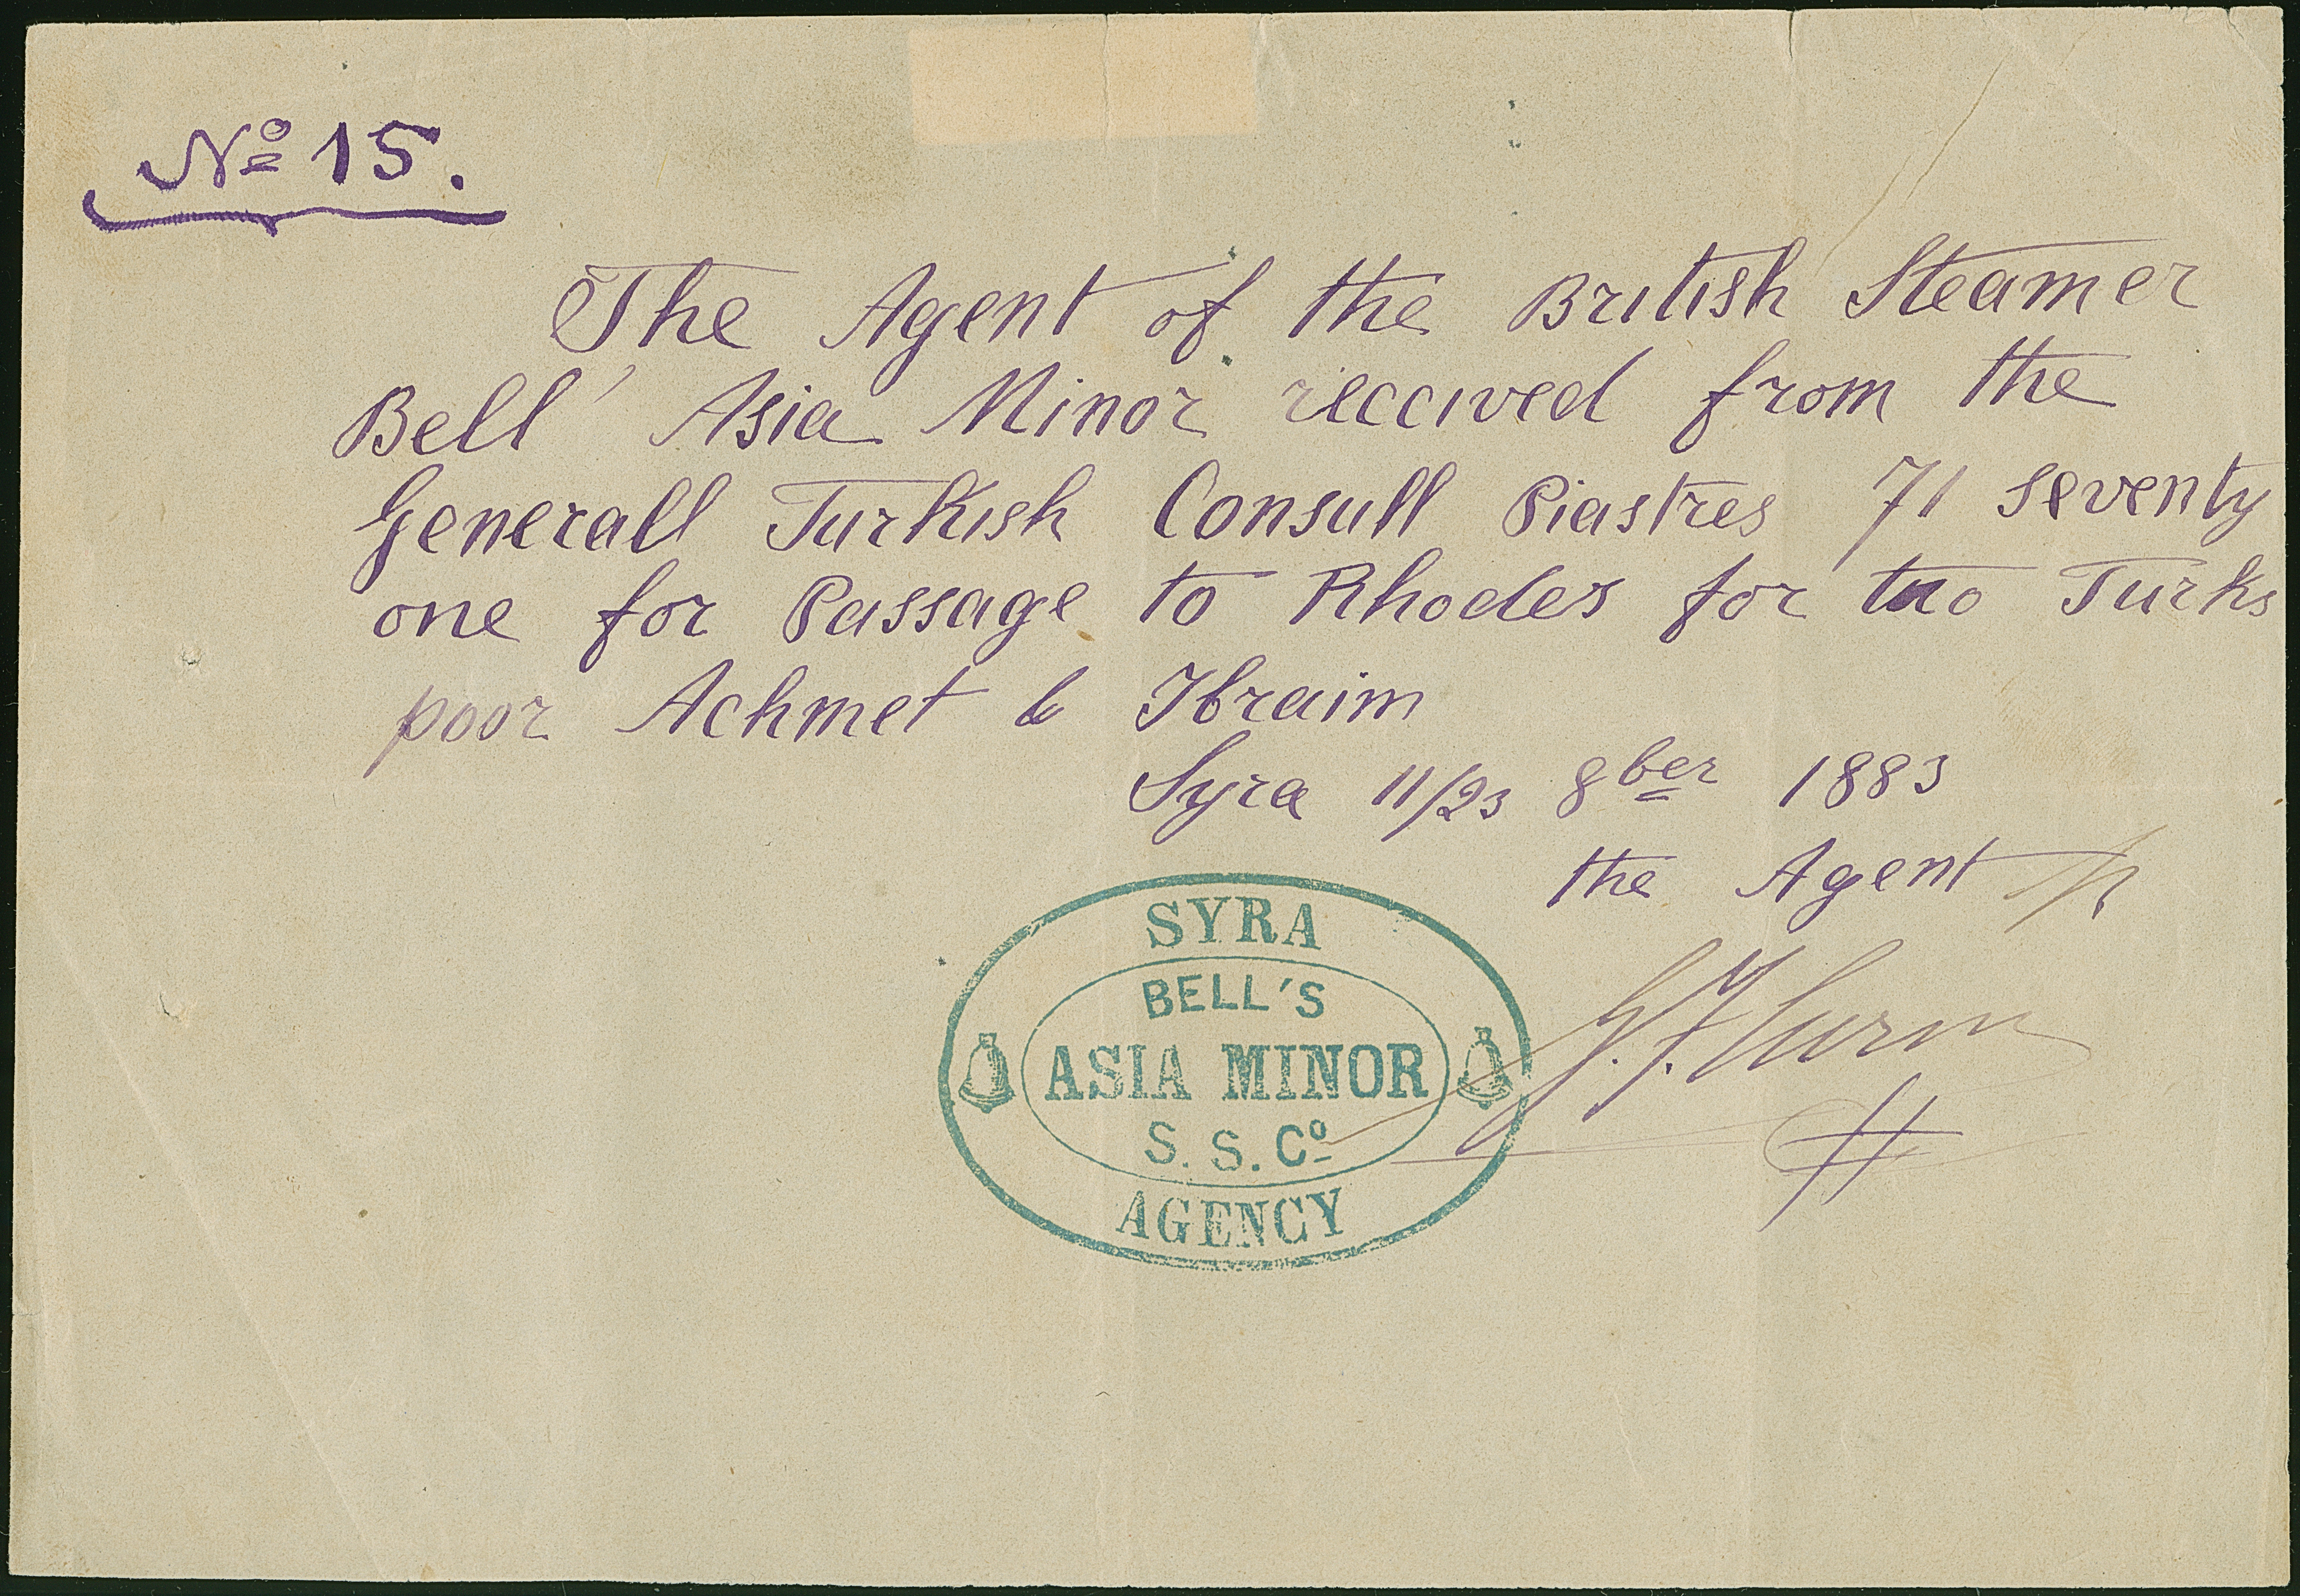 Nº 15.
The Agent of the British Steamer
Bell' Asia Minor received from the
Generall Turkish Consull Piastres 71 seventy
one for Passage to Rhodes for two Turks
poor Achmet & Ibraim
Syra 11/23 8ber 1883
the Agent
SYRA
BELL'S
ASIA MINOR
S. S. Cº
AGENCY